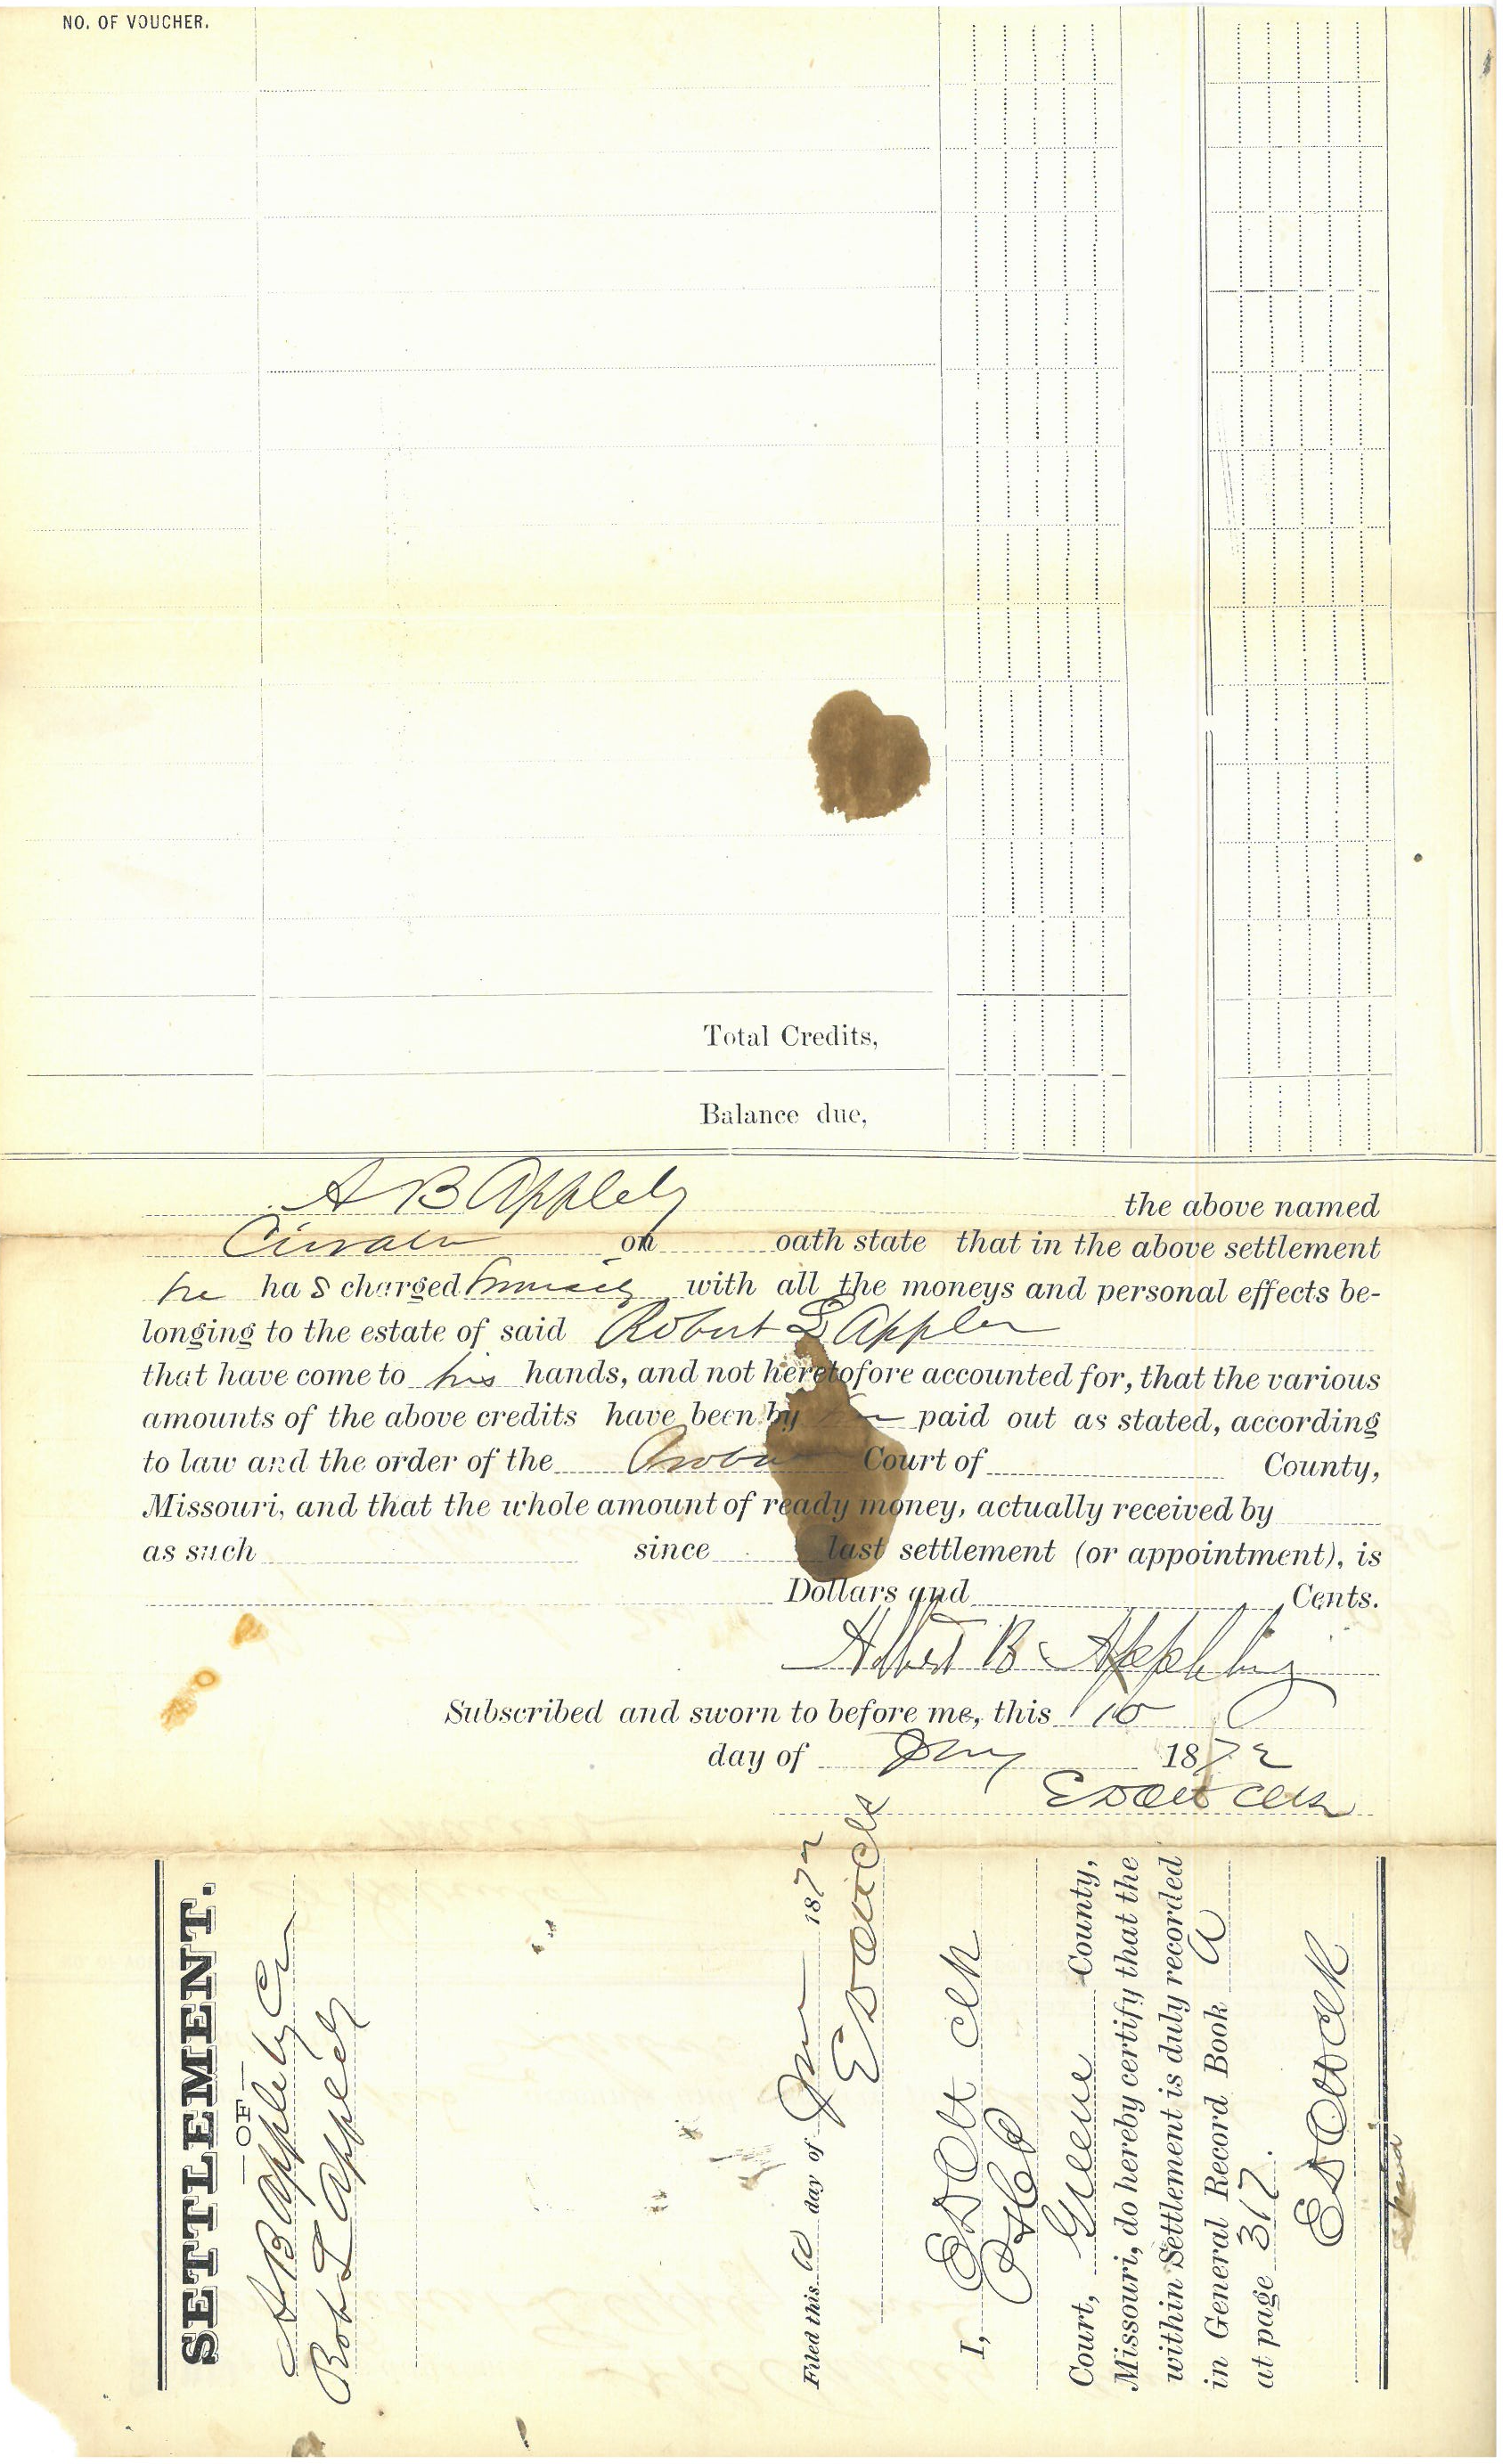 NO. OF VOUCHER.
Total Credits,
Balance due,
A B Appleby the above named
Curator on oath state that in the above settlement
he has charged himself with all the moneys and personal effects be-
longing to the estate of said Robert L Appleby
that have come to his hands, and not heretofore accounted for, that the various
amounts of the above credits have been by him paid out as stated, according
to law and the order of the Probate Court of County,
Missouri, and that the whole amount of ready money, actually received by
as such since last settlement (or appointment), is
Dollars and Cents.
Albert B Appleby
Subscribed and sworn to before me, this 10
day of Jany 1872
E D Ott Clk
SETTLEMENT.
— OF —
A B Appleby Cr
Rob L Appleby
Filed this 10 day of Jan 1872
E D Ott Clk
I, E D Ott Clk
Court, Greene County,
Missouri, do hereby certify that the
within Settlement is duly recorded
in General Record Book A
at page 317.
E D Ott Clk